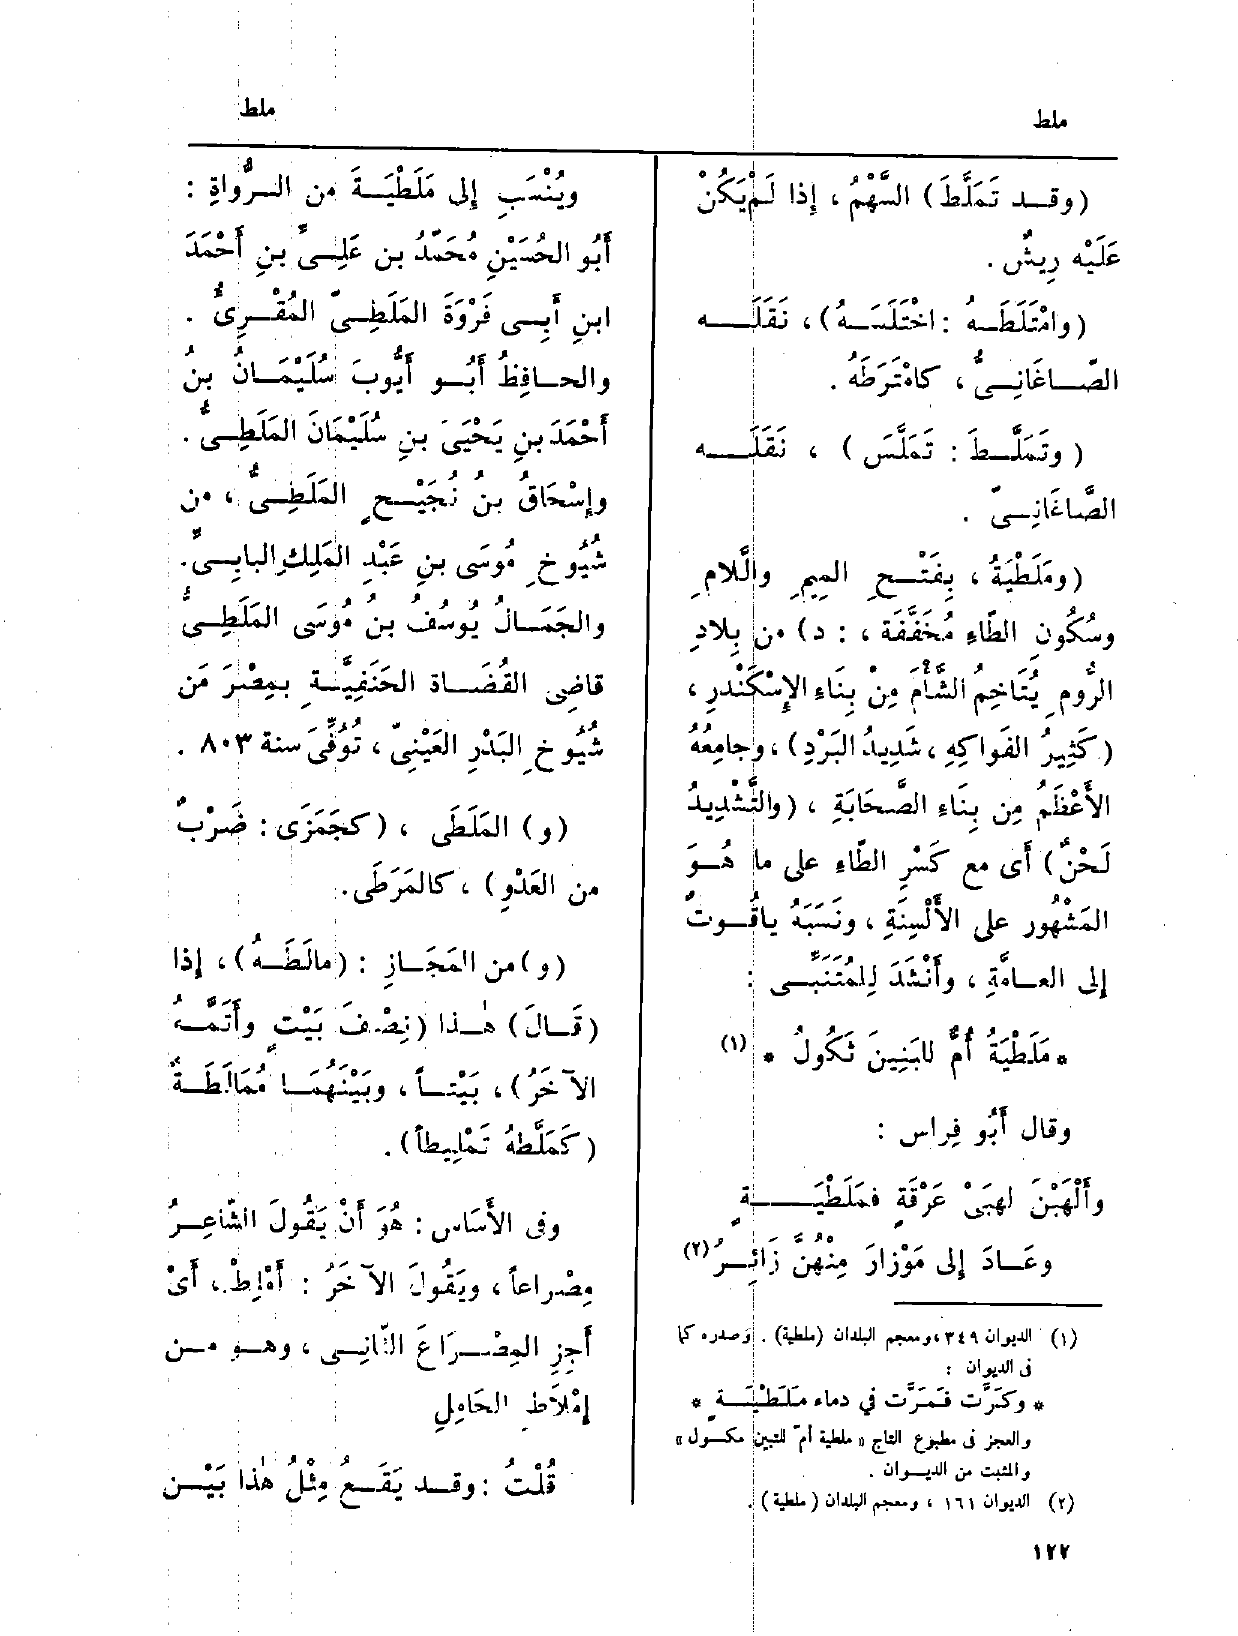 ملط
(وقد تَمَلَّطَ) السَّهْمُ ، إِذا لَمْ يَكُنْ
عَلَيْه رِيشٌ .
(وامْتَلَطَهُ : اخْتَلَسَهُ) ، نَقَلَه
الصّاغَانِىُّ ، كامْتَرَطَهُ .
(وتَمَلَّطَ : تَمَلَّسَ) ، نَقَلَه
الصَّاغَانِىّ .
(ومَلَطْيَةُ ، بِفَتْحِ المِيمِ والَّلامِ
وسُكُونِ الطّاءِ مُخَفَّفَة ، : د) من بِلادِ
الرُّومِ يُتَاخِمُ الشَّأْمَ مِنْ بِنَاءِ الإِسْكَنْدرِ ،
(كَثِيرُ الفَواكِهِ ، شَدِيدُ البَرْدِ) ، وجامِعُهُ
الأَعْظَمُ مِن بِنَاءِ الصَّحَابَةِ ، (والتَّشْدِيدُ
لَحْنٌ) أَى مع كَسْرِ الطّاءِ على ما هُوَ
المَشْهُور على الأَلْسِنَةِ ، ونَسَبَهُ ياقُوتٌ
إلى العامَّةِ ، وأَنْشَدَ لِلمُتَنَبِّى :
* مَلَطْيَةُ أُمٌّ للبَنِينَ ثَكُولُ * (١)
وقال أَبُو فِراس :
وأَلْهَبْنَ لهبَىْ عَرْقَةٍ فمَلَطْيَةٍ
وعَادَ إلى مَوْزارَ مِنْهُنَّ زَائِرُ (٢)
(١) الديوان ٣٤٩ ، ومعجم البلدان (ملطية) . وصدره كما
فى الديوان :
* وكَرَّت فَمَرَّت في دماء مَلَطْيَةٍ *
والعجز فى مطبوع التاج « ملطية أمّ للتبين مكول »
والمثبت من الديوان .
(٢) الديوان ١٦١ ، ومعجم البلدان (ملطية) .
١٢٢
ملط
ويُنْسَب إلى مَلَطْيَةَ من الرُّواةِ :
أَبُو الحُسَيْنِ مُحَمَّدُ بن عَلِىِّ بنِ أَحْمَدَ
ابنِ أَبِى فَرْوَةَ المَلَطِىّ المُقْرِىُّ .
والحافِظُ أَبُو أَيُّوبَ سُلَيْمَانُ بنُ
أَحْمَدَ بنِ يَحْيَىَ بنِ سُلَيْمَانَ المَلَطِىُّ .
وإِسْحَاقُ بنُ نُجَيْحٍ المَلَطِىُّ ، من
شُيُوخِ مُوسَى بنِ عَبْدِ المَلِكِ البابِىِّ .
والجَمَالُ يُوسُفُ بنُ مُوسَى المَلَطِىُّ
قاضِى القُضَاة الحَنَفِيَّةِ بمِصْرَ مَن
شُيُوخِ البَدْرِ العَيْنِىّ ، تُوُفِّىَ سنة ٨٠٣ .
(و) المَلَطَى ، (كجَمَزَى : ضَرْبٌ
من العَدْوِ) ، كالمَرَطَى .
(و) من المَجَازِ : (مالَطَهُ) ، إذا
(قَالَ) هٰذا (نِصْفَ بَيْتٍ وأَتَمَّهُ
الآخَرُ) ، بَيْتاً ، وبَيْنَهُمَا مُمَالَطَةٌ
(كمَلَّطهُ تَمْلِيطاً) .
وفى الأَسَاسِ : هُوَ أَنْ يَقُولَ الشّاعِرُ
مِصْراعاً ، ويَقُولَ الآخَرُ : أَمْلِطْ ، أَىْ
أَجِزِ المِصْرَاعَ الثّانِى ، وهو من
إِمْلَاطِ الحَامِلِ
قُلْتُ : وقد يَقَع مِثْلُ هٰذا بَيْن